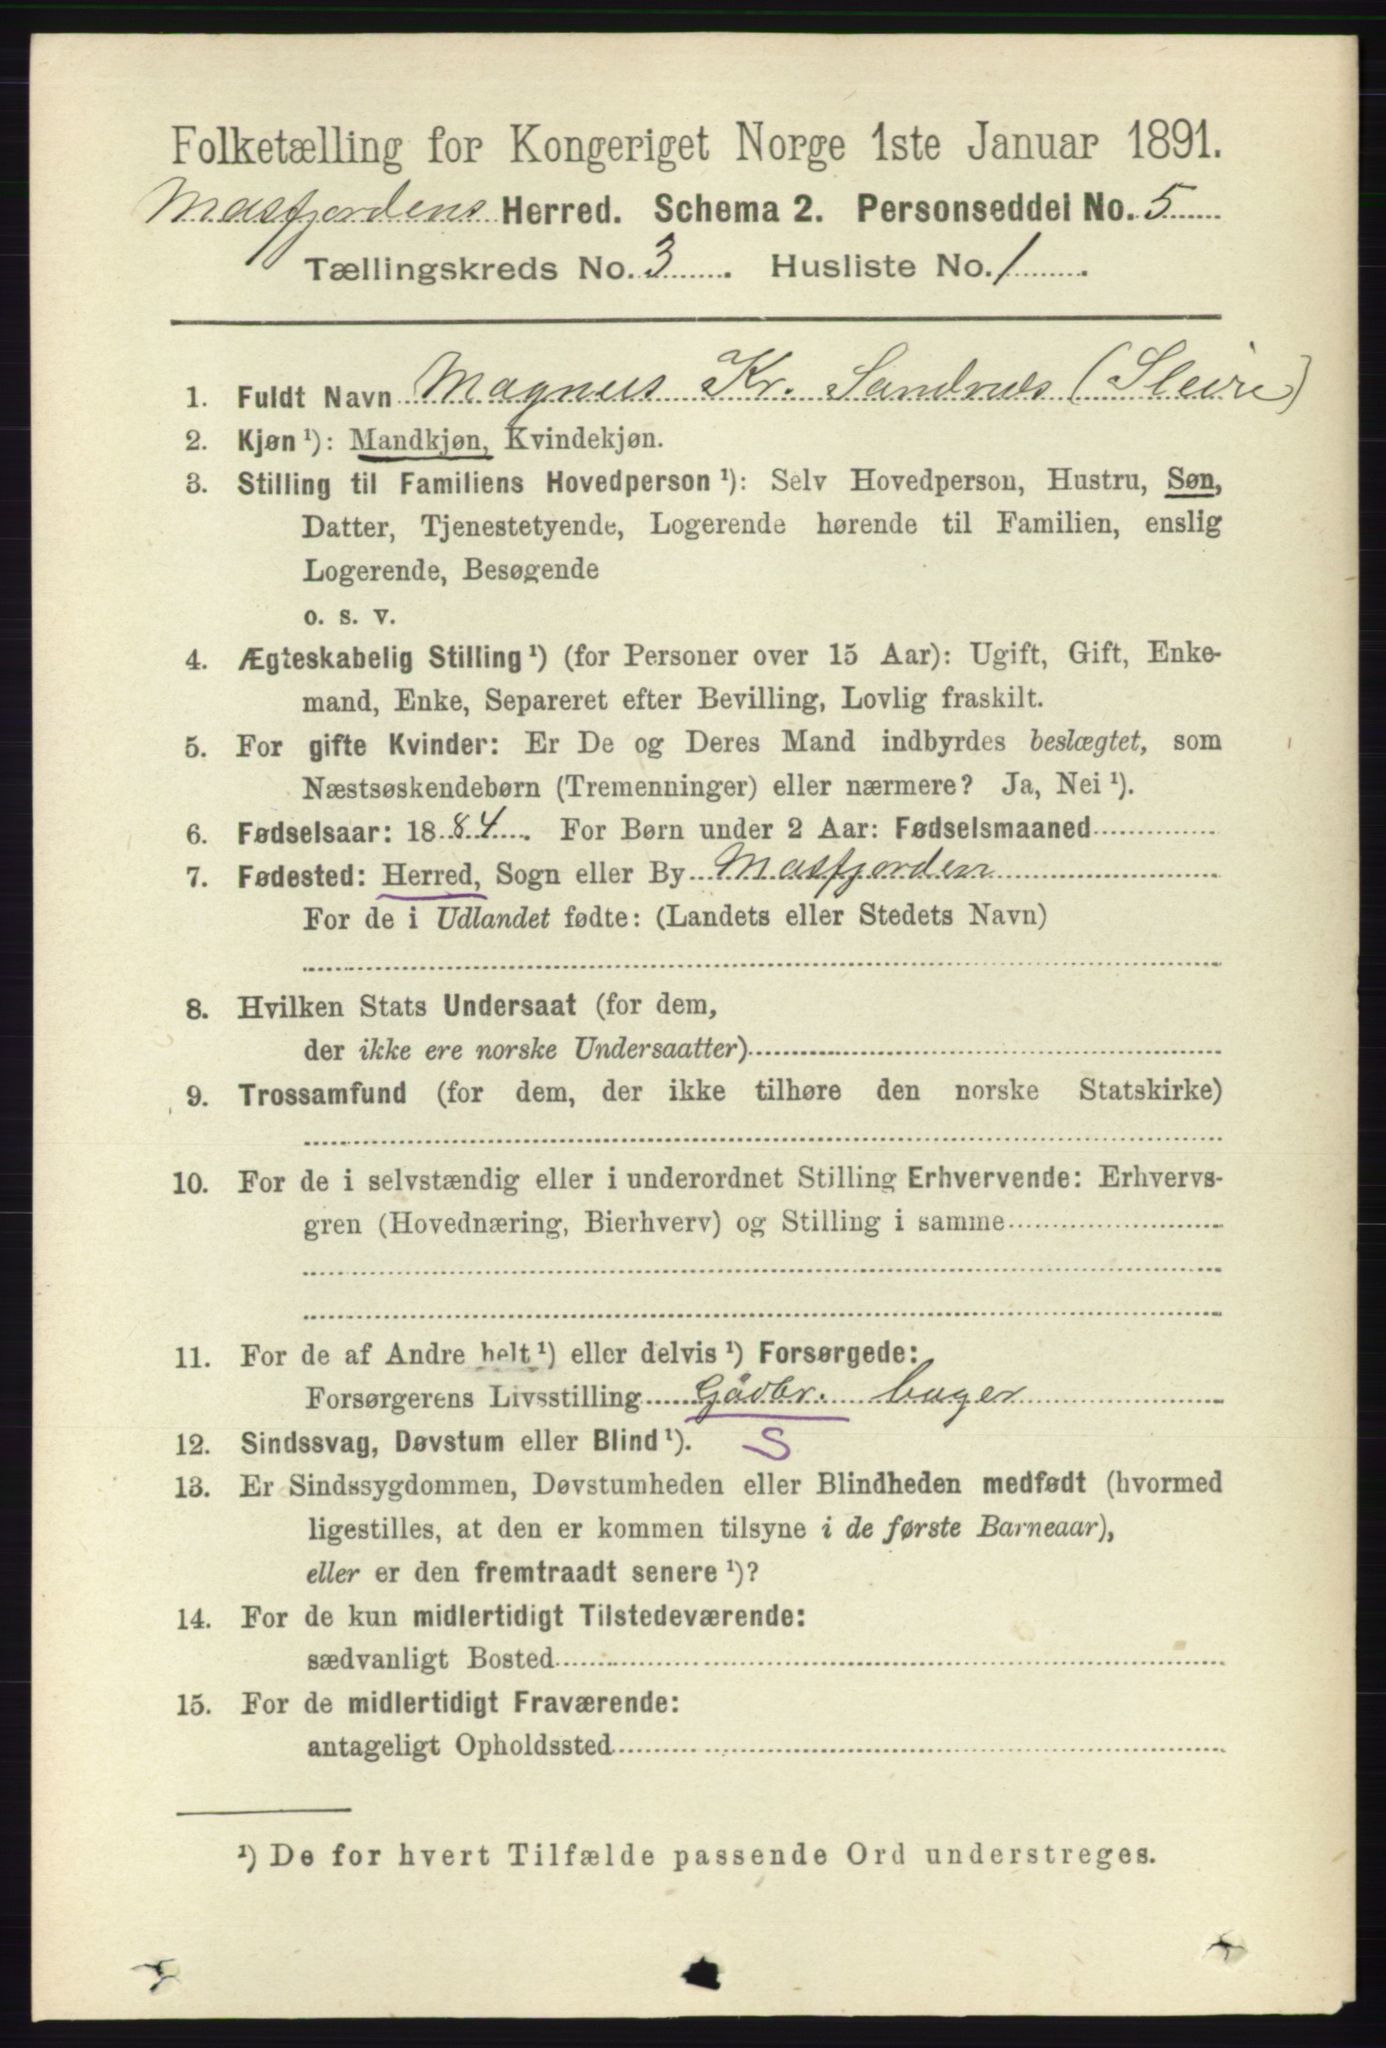 Folketælling for Kongeriget Norge 1ste Januar 1891.
Masfjordens Herred. Schema 2. Personseddel No. 5
Tællingskreds No. 3. Husliste No. 1.
1. Fuldt Navn Magnus Kr. Sandnæs (Sleire)
2. Kjøn ¹): Mandkjøn, Kvindekjøn.
3. Stilling til Familiens Hovedperson ¹): Selv Hovedperson, Hustru, Søn,
Datter, Tjenestetyende, Logerende hørende til Familien, enslig
Logerende, Besøgende
o. s. v.
4. Ægteskabelig Stilling ¹) (for Personer over 15 Aar): Ugift, Gift, Enke-
mand, Enke, Separeret efter Bevilling, Lovlig fraskilt.
5. For gifte Kvinder: Er De og Deres Mand indbyrdes beslægtet, som
Næstsøskendebørn (Tremenninger) eller nærmere? Ja, Nei ¹).
6. Fødselsaar: 1884. For Børn under 2 Aar: Fødselsmaaned
7. Fødested: Herred, Sogn eller By Masfjorden
For de i Udlandet fødte: (Landets eller Stedets Navn)
8. Hvilken Stats Undersaat (for dem,
der ikke ere norske Undersaatter)
9. Trossamfund (for dem, der ikke tilhøre den norske Statskirke)
10. For de i selvstændig eller i underordnet Stilling Erhvervende: Erhvervs-
gren (Hovednæring, Bierhverv) og Stilling i samme
11. For de af Andre helt ¹) eller delvis ¹) Forsørgede:
Forsørgerens Livsstilling Gådbr. bager
12. Sindssvag, Døvstum eller Blind ¹). S
13. Er Sindssygdommen, Døvstumheden eller Blindheden medfødt (hvormed
ligestilles, at den er kommen tilsyne i de første Barneaar),
eller er den fremtraadt senere ¹)?
14. For de kun midlertidigt Tilstedeværende:
sædvanligt Bosted
15. For de midlertidigt Fraværende:
antageligt Opholdssted
¹) De for hvert Tilfælde passende Ord understreges.